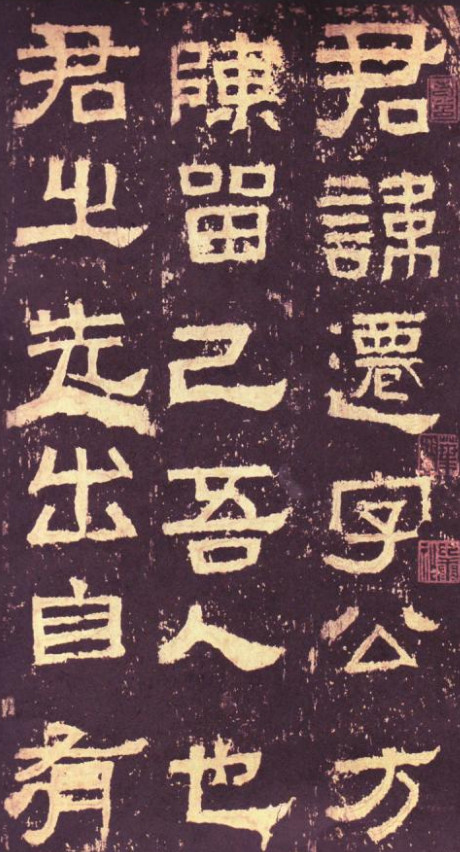 君諱遷字公方
陳留己吾人也
君之先出自有